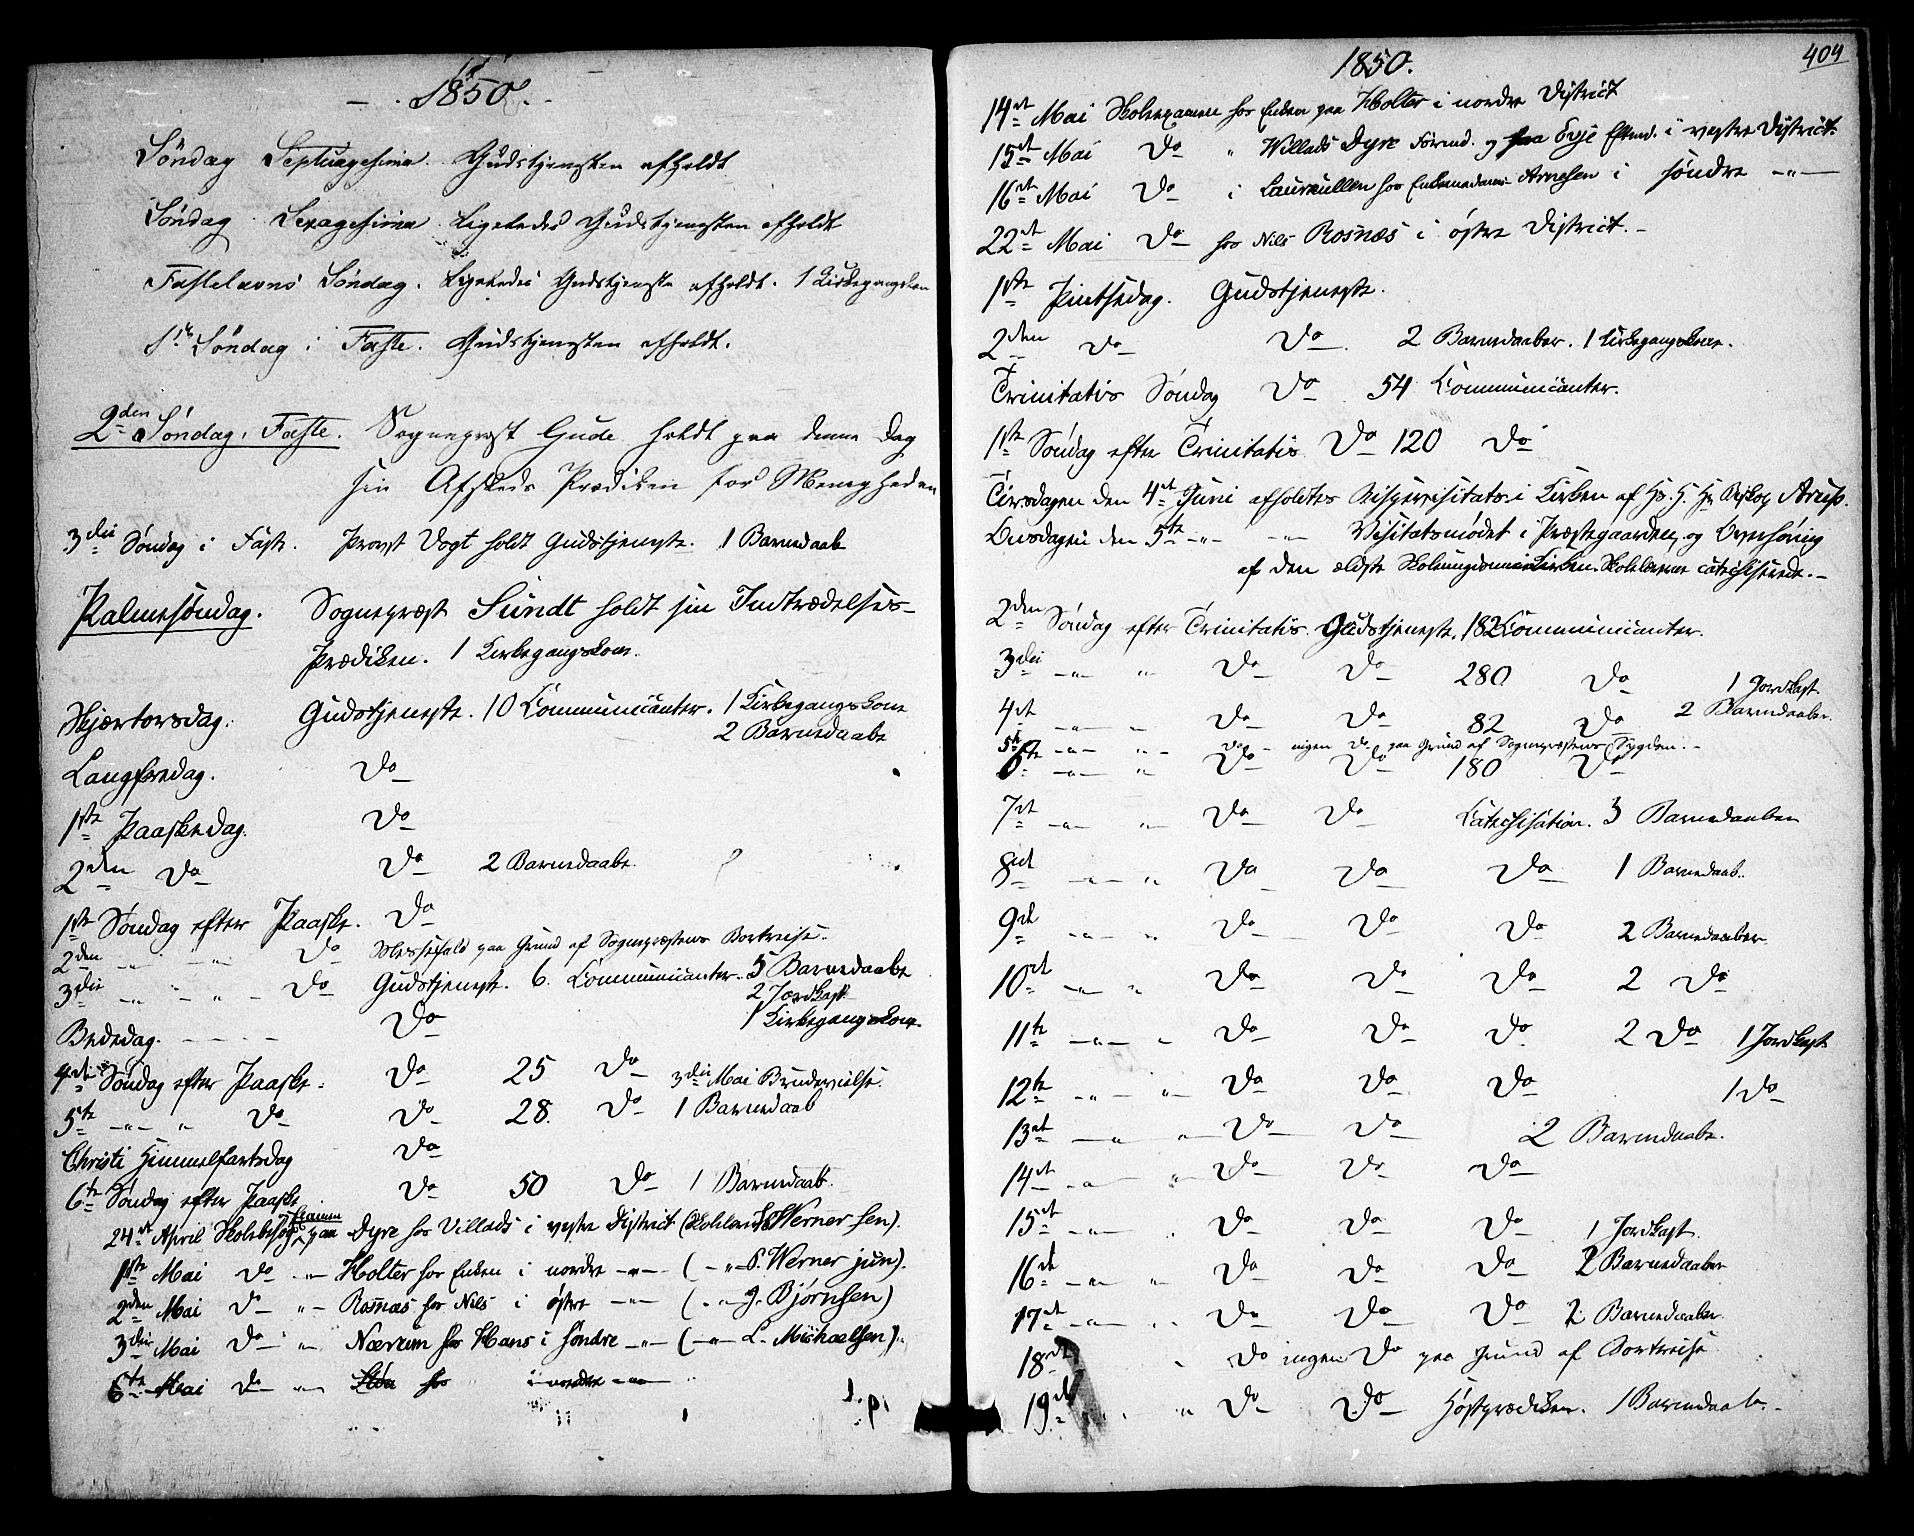 1850.
Søndag Septuagesima. Gudstjenesten afholdt
Søndag Sexagesima. Ligeledes Gudstjenesten afholdt
Fastelavns Søndag. Ligeledes Gudstjeneste afholdt. 1 Kirkegangskone
1ste Søndag i Faste. Gudstjenesten afholdt.
2den Søndag i Faste. Sognepræst Gude holdt paa denne Dag
sin Afskeds Prædiken for Menigheden
3die Søndag i Faste. Provst Vogt holdt Gudstjeneste. 1 Barnedaab
Palmesøndag. Sognepræst Sundt holdt sin Indtrædelses-
Prædiken. 1 Kirkegangskone.
Skjærtorsdag. Gudstjeneste. 10 Communicanter. 1 Kirkegangskone
2 Barnedaabe
Langfredag. Do
1ste Paaskedag. Do
2den Do Do 2 Barnedaabe.
1ste Søndag efter Paaske. Do
2den -"- -"- Do Messefald paa Grund af Sognepræstens Bortreise.
3die -"- -"- Do Gudstjeneste. 6. Communicanter. 5 Barnedaabe
2 Jordkast
Bededag. Do 1 Kirkegangskone.
4de Søndag efter Paaske. Do 25 Do 3die Mai Brudevielse.
5te -"- " Do Do 28. Do 1 Barnedaab
Christi Himmelfartsdag Do
6te Søndag efter Paaske Do 50 Do 1 Barnedaab.
24de April Skolebesøg Examen paa Dyre hos Villads i vestre District (Skolelærer Werner sen).
1ste Mai Do -"- Holter hos Enken i nordre -"- (-"- P. Werner jun).
2den Mai Do "- Rosnæs hos Nils i østre -"- (-"- J. Bjørnsen)
3die Mai Do -"- Nærum hos Hans i søndre -"- (-"- L. Michaelsen).
6te Mai Do -"- hos i nordre -"-
1850.
404
14de Mai Skoleexamen hos Enken paa Holter i nordre District
15de Mai Do " Willads Dyre Formd. og paa Evje Efterd. i vestre District.
16de Mai Do i Laurkullen hos Enkemadame Arnesen i søndre -"-
22de Mai Do hos Nils Rosnæs i østre District.-
1ste Pintsedag. Gudstjeneste.
2den Do Do 2 Barnedaaber. 1 Kirkegangskone.
Trinitatis Søndag Do 54 Communicanter.
1ste Søndag efter Trinitatis Do 120 Do
Tirsdagen den 4de Juni afholdtes Bispevisitats i Kirken af Hs. H. Hr. Biskop Arup.
Onsdagen den 5te -"- -"- Visitatsmødet i Præstegaarden, og Overhøring
af den ældste Skoleungdom i Kirken. Skolelærerne catechiserede.-
2den Søndag efter Trinitatis. Gudstjeneste, 182 Communicanter.
3die -"- " Do Do 280 Do 1 Jordkast.
4de -"- " Do Do 82 Do 2 Barnedaaber.
5te -"- "- Do - ingen Do paa Grund af Sognepræstens Sygdom.-
6te -"- " Do Do 180 Do
7de -"- " Do Do Catechisation. 3 Barnedaaber
8de -"- " Do Do Do 1 Barnedaab.
9de -"- " Do Do Do 2 Barnedaaber
10de -"- " Do Do Do 2 Do
11te -"- " Do Do Do 2 Do 1 Jordkast
12te -"- " Do Do Do 1 Do
13de -"- " Do Do 2 Barnedaabe.
14de -"- " Do Do Do
15de -"- " Do Do Do 1 Jordkast.
16de -"- " Do Do Do 2 Barnedaaber
17de -"- " Do Do Do 2 Barnedaaber
18de " Do ingen Do paa Grund af Bortreise
19de " Do Do Høstprædiken. 1 Barnedaab.-